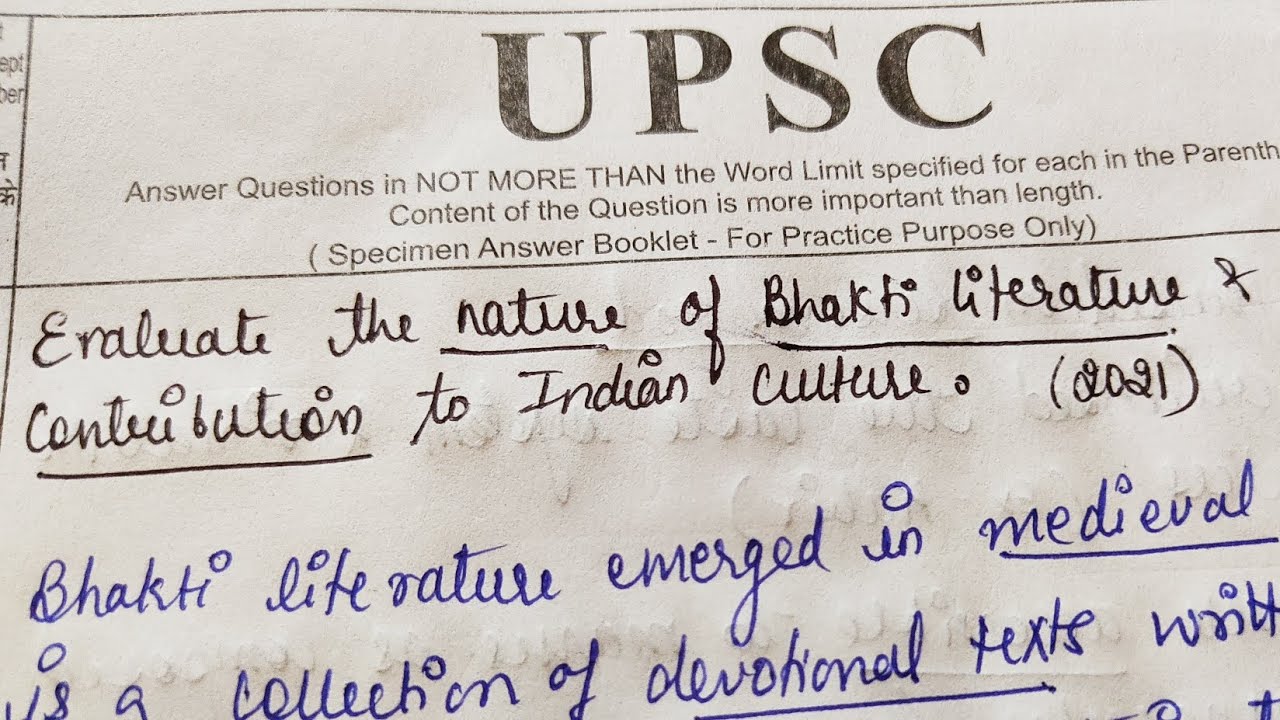 ept
ber
के
UPSC
Answer Questions in NOT MORE THAN the Word Limit specified for each in the Parenth
Content of the Question is more important than length.
( Specimen Answer Booklet - For Practice Purpose Only)
Evaluate the nature of Bhakti literature &
contribution to Indian culture. (2021)
Bhakti literature emerged in medieval
is a collection of devotional texts writt